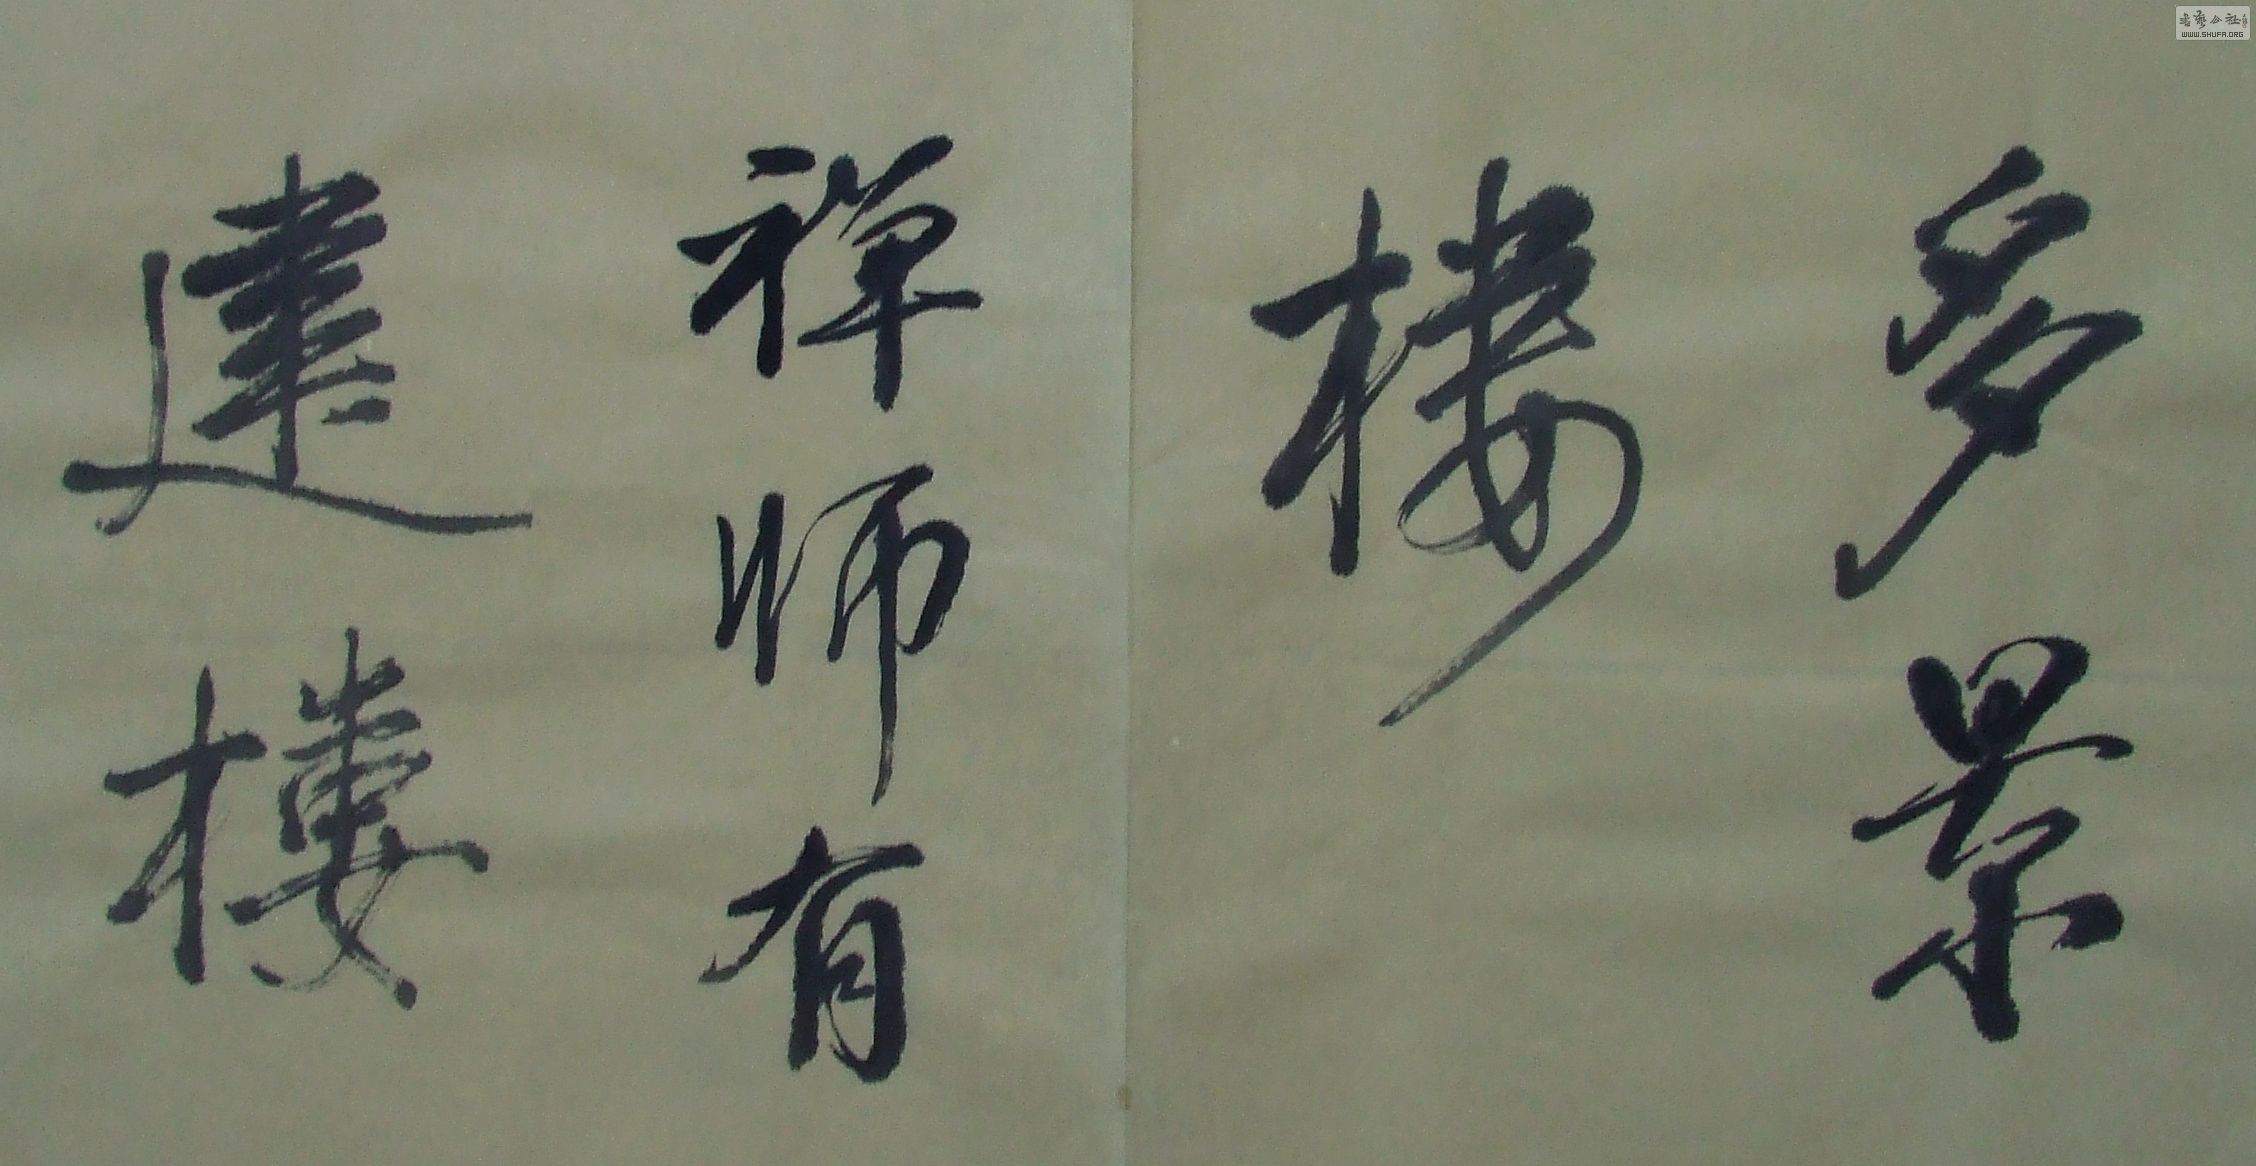 多景
樓
禪師有
建樓
書藝公社
WWW.SHUFA.ORG